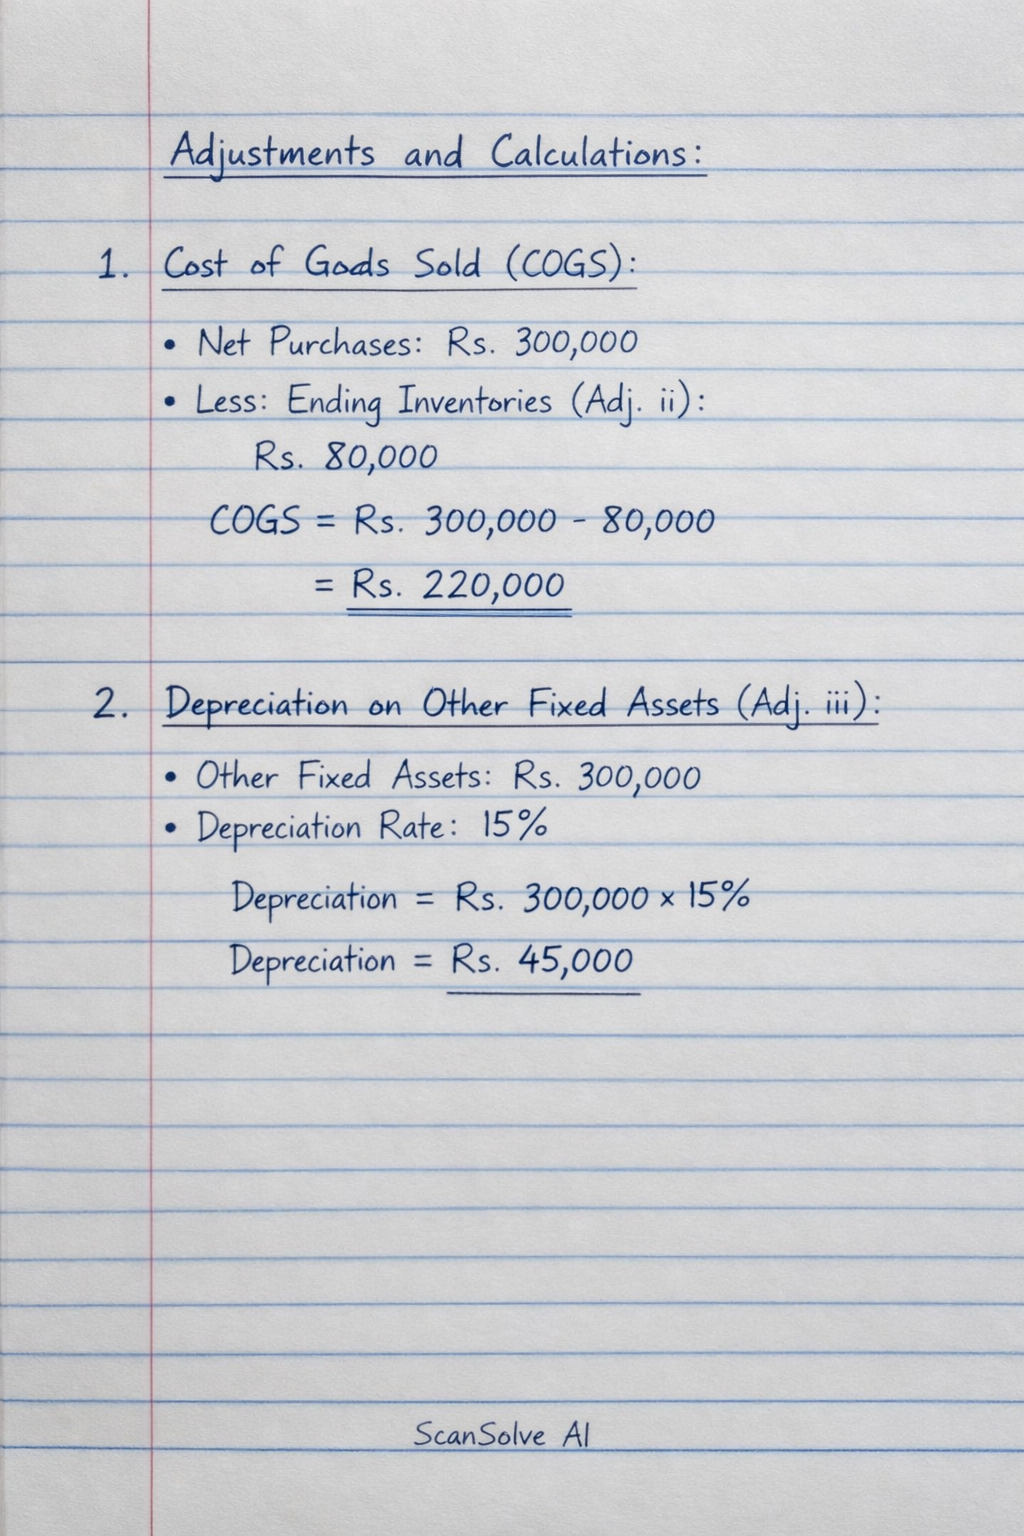 Adjustments and Calculations:
1. Cost of Goods Sold (COGS):
• Net Purchases: Rs. 300,000
• Less: Ending Inventories (Adj. ii):
Rs. 80,000
COGS = Rs. 300,000 - 80,000
= Rs. 220,000
2. Depreciation on Other Fixed Assets (Adj. iii):
• Other Fixed Assets: Rs. 300,000
• Depreciation Rate: 15%
Depreciation = Rs. 300,000 × 15%
Depreciation = Rs. 45,000
ScanSolve AI